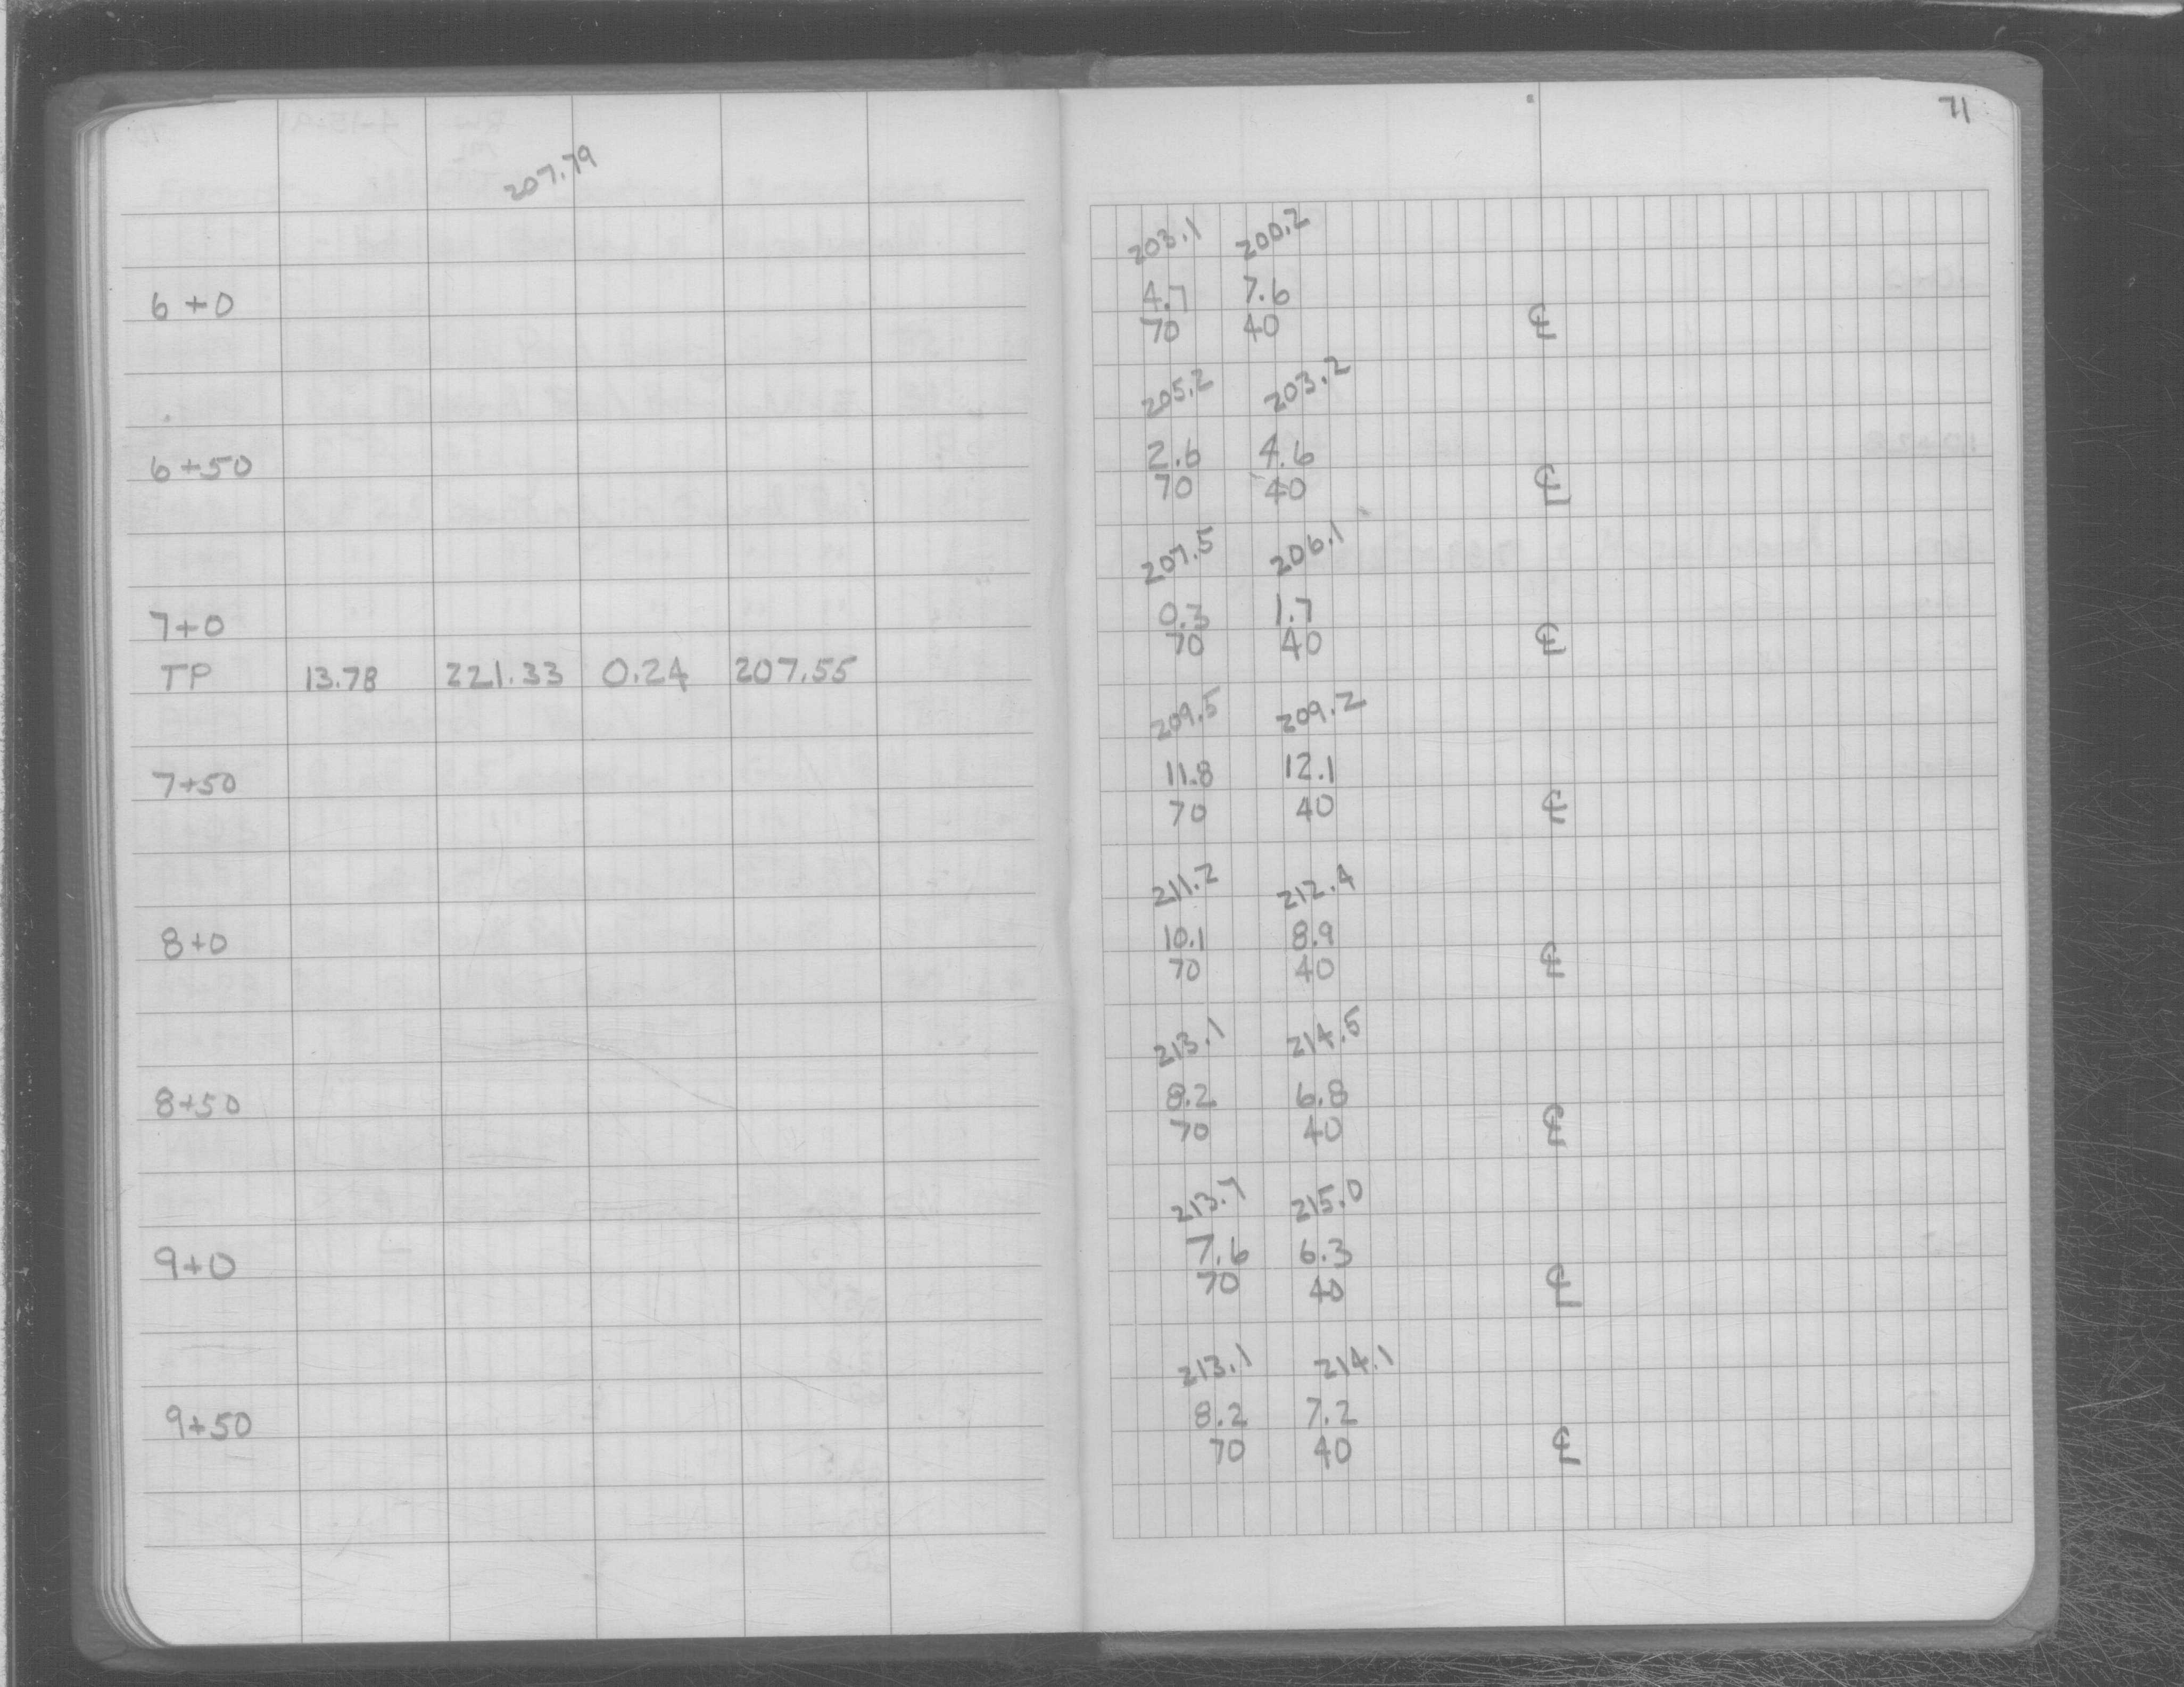 71
207.79
203.1 200.2
6+0 4.7 7.6
70 40 ℄
205.2 203.2
6+50 2.6 4.6
70 40 ℄
207.5 206.1
7+0 0.3 1.7
70 40 ℄
TP 13.78 221.33 0.24 207.55
209.5 209.2
7+50 11.8 12.1
70 40 ℄
211.2 212.4
8+0 10.1 8.9
70 40 ℄
213.1 214.5
8+50 8.2 6.8
70 40 ℄
213.7 215.0
9+0 7.6 6.3
70 40 ℄
213.1 214.1
9+50 8.2 7.2
70 40 ℄